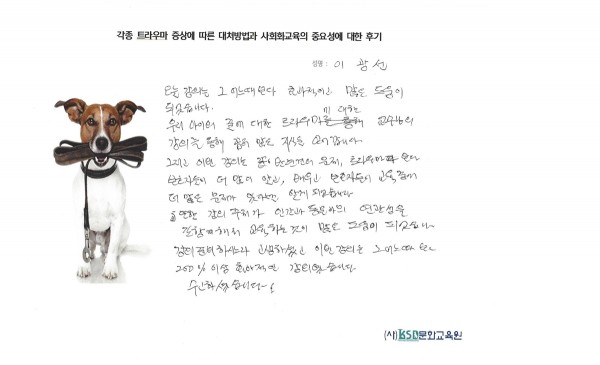 각종 트라우마 증상에 따른 대처방법과 사회화교육의 중요성에 대한 후기
성명 : 이 광 선
오늘 강의는 그 어느때 보다 효과적이고 많은 도움이
되었습니다.
우리 아이의 대한 트라우마 에 대한 교수님의
강의를 통해 많은 지식을 습니다
그리고 이번 강의는 의 문제, 트라우마 보다
보호자들이 더 많이 알고, 배우고 보호자들이 교육
더 많은 문제가 알게 되었습니다
또한 강의 주제가 인간과 동물과의 연관성을
교육하는것이 많은 도움이 되었습니다
강의준비하시느라 고생하셨고 이번 강의는 그 어느때 보다
200% 이상 효과적인 강의였습니다
수고하셨습니다~
(사)KSD문화교육원